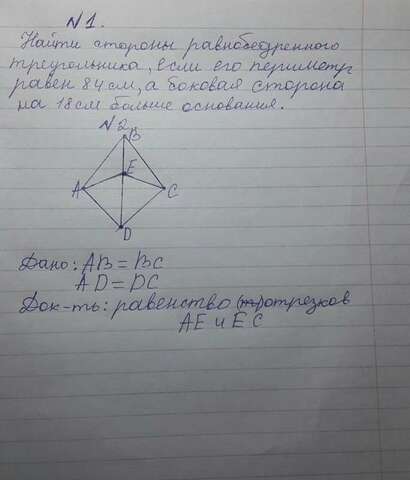 №1.
Найти стороны равнобедренного
треугольника, если его периметр
равен 84см, а боковая сторона
на 18см больше основания.
№2
B
E
A C
D
Дано: AB = BC
AD = DC
Док-ть: равенство отрезков
AE и EC